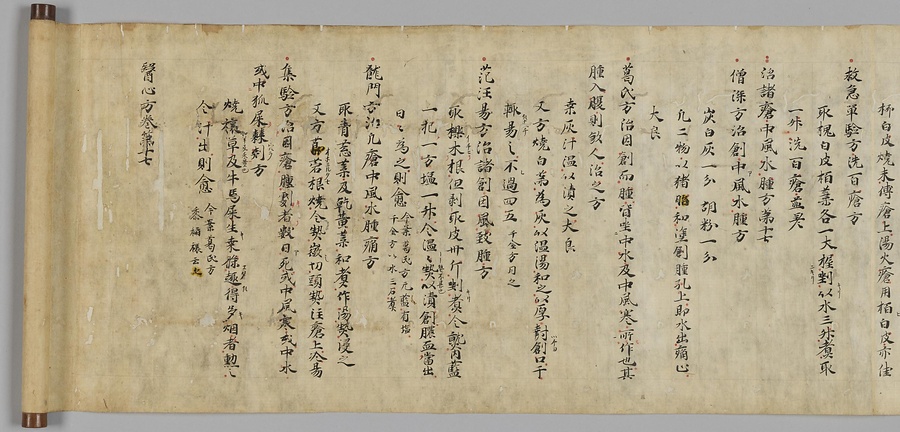 柳白皮燒末傅瘡上湯火瘡用栢白皮亦佳
救急單驗方洗百瘡方
取槐白皮柏葉各一大握剉以水三升煮取
一升洗百瘡並差
治諸瘡中風水腫方第十七
僧深方治創中風水腫方
炭白灰一分 胡粉一分
凡二物以猪脂和塗創腫孔上即水出痛止
大良
葛氏方治因創而腫皆坐中水及中風寒所作也其
腫入腹則致人治之方
桒灰汁温以漬之大良
又方燒白茅為灰以温湯和之以厚封創口干
輙易之不過四五 千金方同之
范汪易方治諸創因風致腫方
取櫟木根但剥取皮卅斤剉煮令熟内藍
一把一方塩一升令温々熱以漬創膿血當出
日々為之則愈 今案葛氏方无藍有塩
千金方以水三石煮
龍門方治凡瘡中風水腫痛方
取青葱葉及乾黄葉和煮作湯熱浸之
又方菖若根燒令熱截切頭熱注瘡上冷易
集驗方治因瘡腫劇者數日死或中風寒或中水
或中狐尿𣗥刺方
燒穰草及牛馬屎生桒條趣得多烟者勳之
令汁出則愈 今案葛氏方
醫心方卷第十七